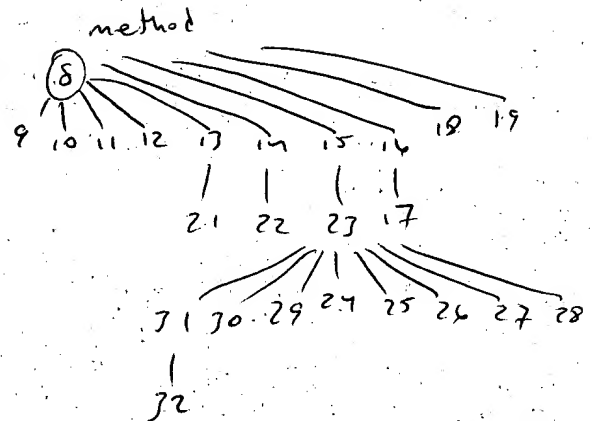 method
8
18 19
9 10 11 12 13 14 15 16
21 22 23 17
31 30 29 24 25 26 27 28
32